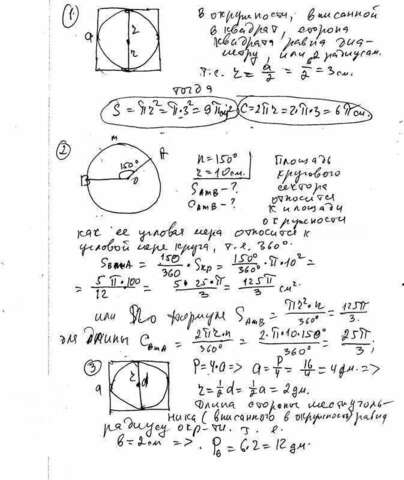 1
в окружности, вписанной
в квадрат, сторона
квадрата равна диа-
метру, или 2 радиусам.
a
r
r
т.е. r = a/2 = 6/2 = 3 см.
тогда
S = πr² = π·3² = 9π см²
C = 2πr = 2·π·3 = 6π см.
2
m
A
150°
O
B
n = 150°
r = 10 см.
S AmB - ?
C AmB - ?
Площадь
кругового
сектора
относится
к площади
окружности
как ее угловая мера относится к
угловой мере круга, т.е. 360°.
= 150/360 · Sкр = 150°/360° · π · 10² =
= 5π·100/12 = 5·25·π/3 = 125π/3 см²
или по формуле S AmB = πr²·n/360° = 125π/3.
для длины C BmA = 2πr·n/360° = 2·π·10·150°/360° = 25π/3;
3
a
r
d
P = 4·a => a = P/4 = 16/4 = 4 дм. =>
r = 1/2 d = 1/2 a = 2 дм.
Длина стороны шестиуголь-
ника (вписанного в окружность) равна
радиусу окр-ти. т.е.
в = 2 см => P₆ = 6·2 = 12 дм.